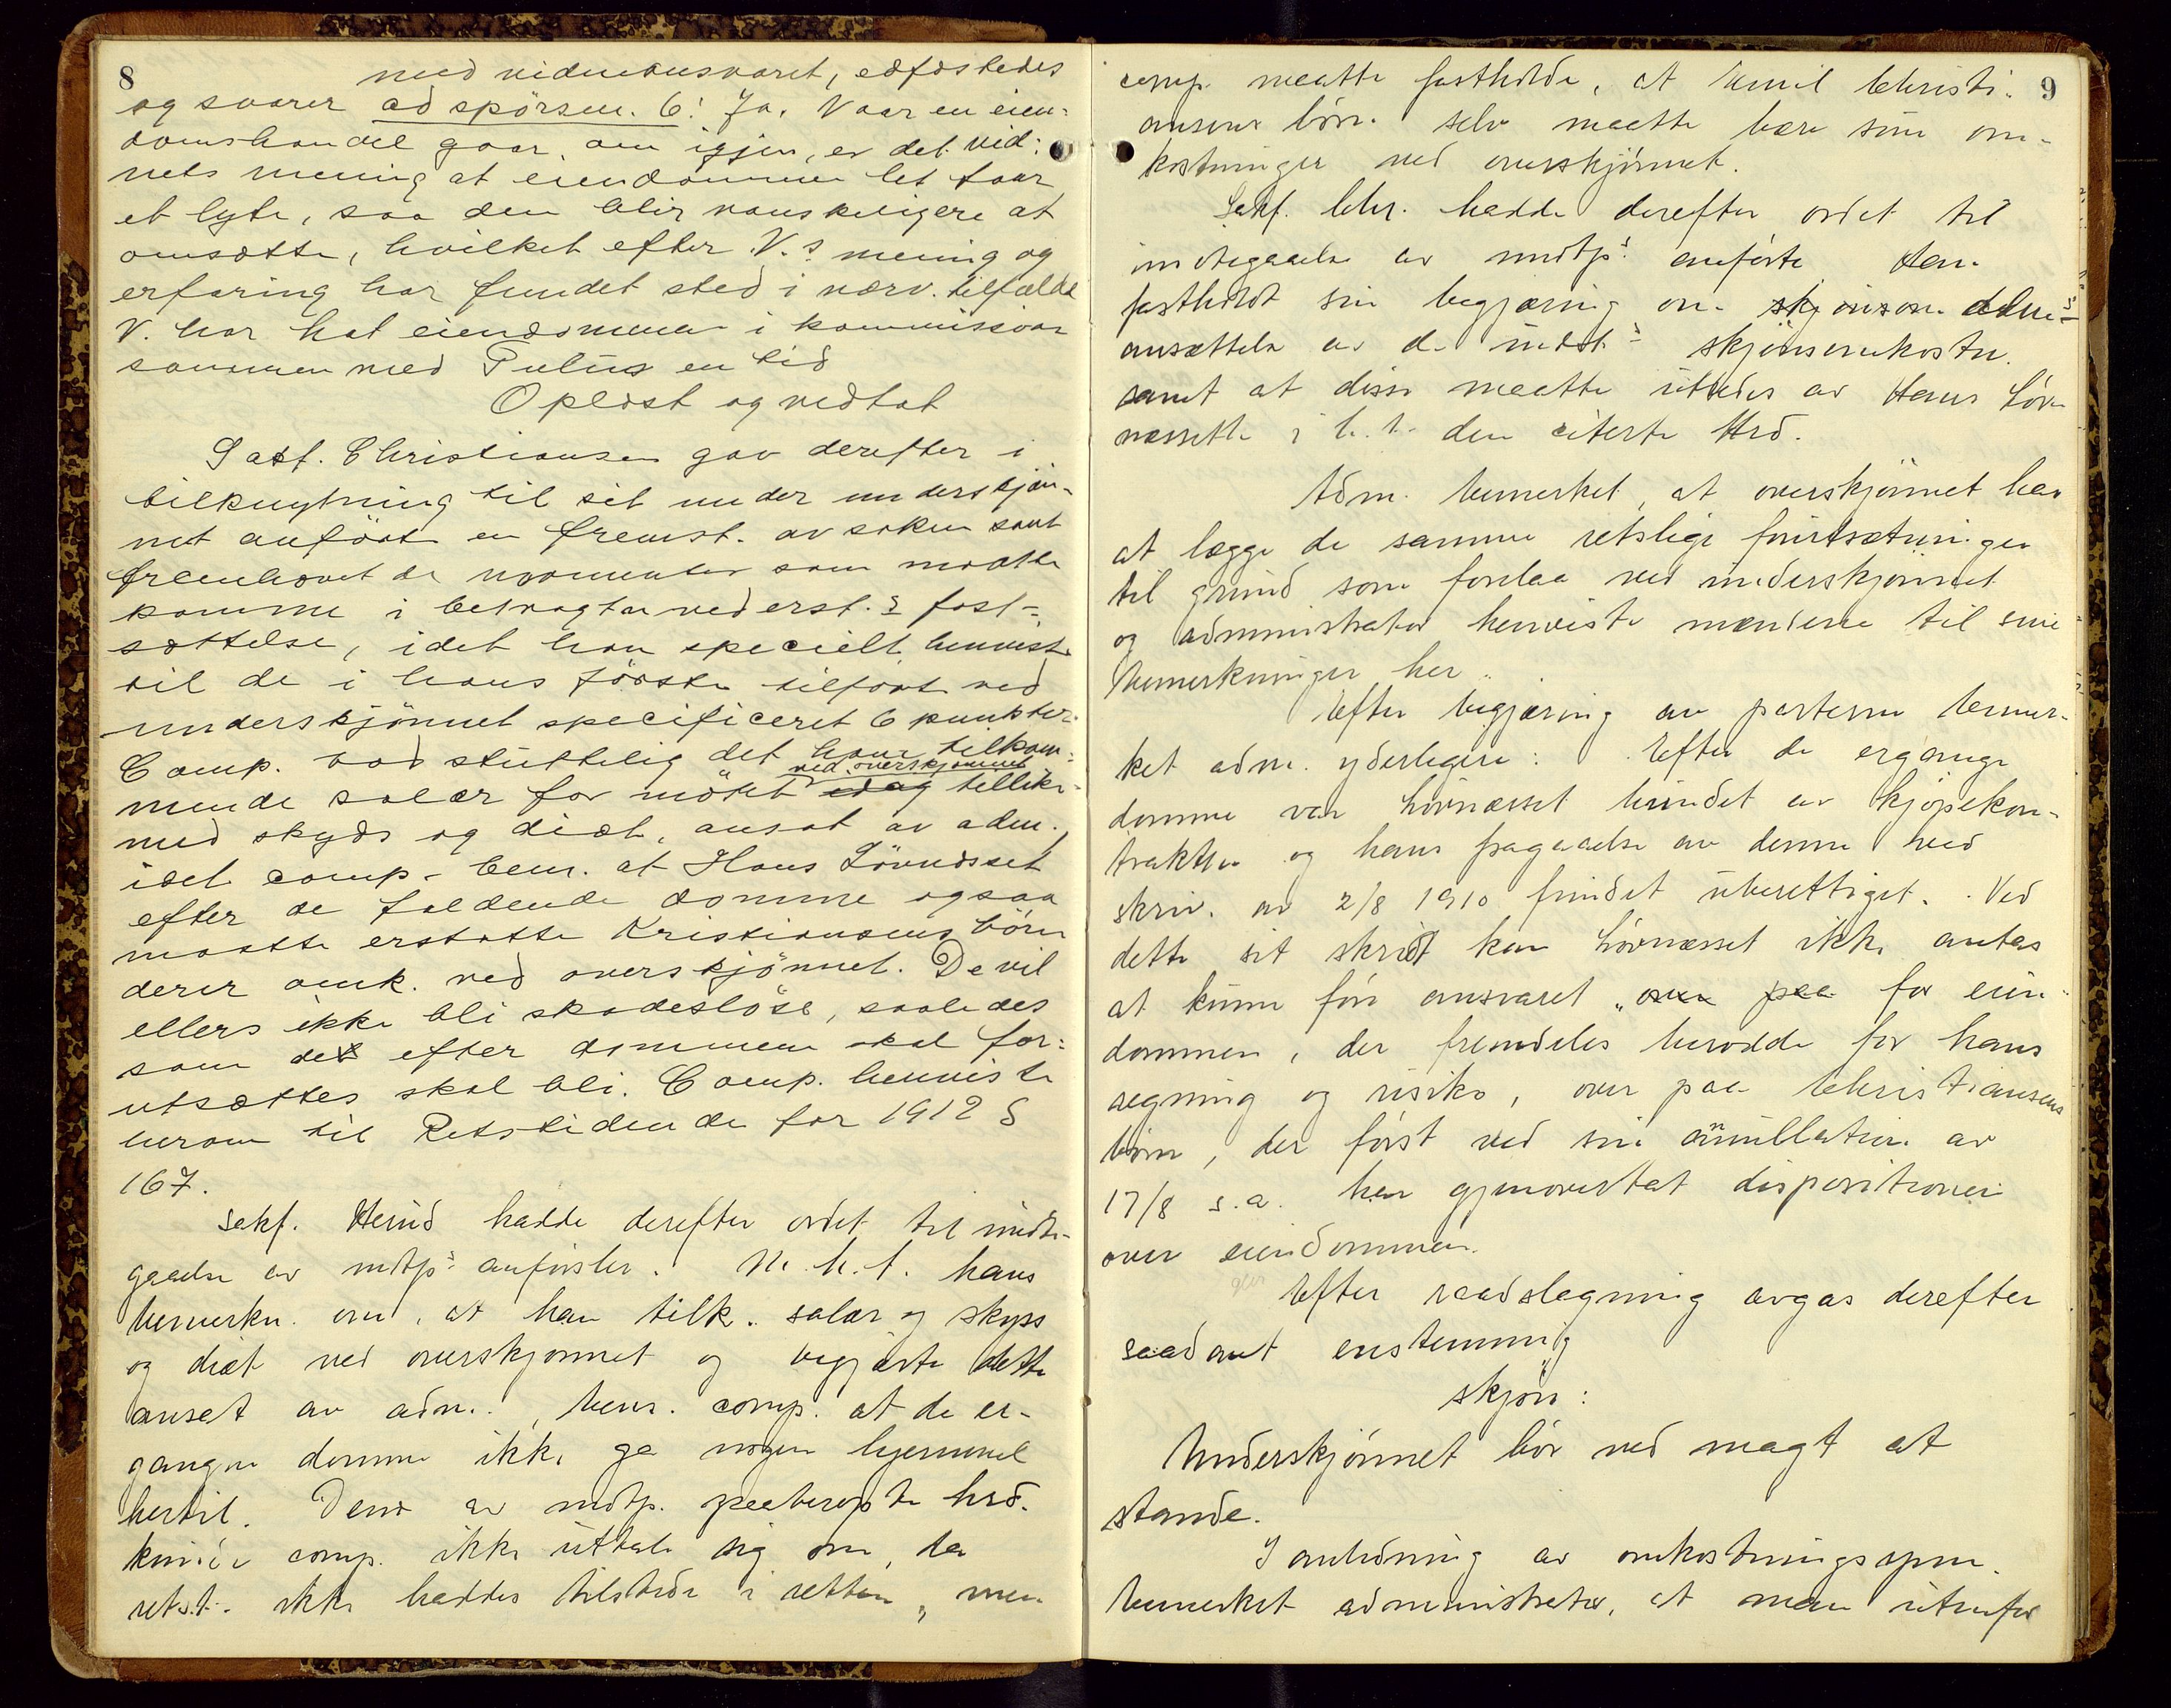 8
med vidneansvaret, edfæstedes
og svarer ad spörsm. 6: Ja. Naar en eien-
domshandel gaar om igjen, er det vid-
nets mening at eiendommen let faar
et lyte, saa den blir vanskeligere at
omsætte, hvilket efter V.s mening og
erfaring har fundet sted i nærv. tilfælde
V. har hat eiendommen i kommission
sammen med Tulius en tid
Oplæst og vedtat
Sakf. Christiansen gav derefter i
tilknytning til sit under underskjön-
net anförte en fremst. av saken samt
fremhævet de momenter som maatte
komme i betragtn ved erst.s fast-
sættelse, idet han specielt henviste
til de i hans förste tilfört ved
underskjönnet specificeret 6 punkter.
Comp. bad sluttelig det ham tilkom-
mende salær for mötet ved overskjönnet idag tillike-
med skyds og diæt, ansat av adm.,
idet comp. bem. at Hans Lövnæsset
efter de faldende domme ogsaa
maatte erstatte Kristiansens börn
derer omk. ved overskjönnet. De vil
ellers ikke bli skadeslöse, saaledes
som det efter dommen skal for-
utsættes skal bli. Comp. henviste
herom til Retstidende for 1912 S
167.
Sakf. Herud hadde derefter ordet til imöte-
gaaelse av mdtp.s anförsler. M. h. t. hans
bemerkn. om, at han tilk. salær og skyss
og diæt ved overskjönnet og begjærte dette
anset av adm., bem. comp. at de er-
gangne domme ikke ga nogen hjemmel
hertil. Den av mdtp. paaberopte hrd.
kunde comp. ikke uttale sig om, da
retst. ikke haddes tilstede i retten, men
9
comp. maatte fastholde, at Emil Christi-
ansens börn selv maatte bære sine om-
kostninger ved overskjönnet.
Sakf. Chr. hadde derefter ordet til
imötegaaelse av mdtp.s anförte. Han
fastholdt sin begjæring om skjönsom adm.s
ansættelse av de inds skjönsomkostn.
samt at disse maatte utredes av Hans Löv-
næsset i h. t. den citerte Hrd.
Adm. bemerket, at overskjönnet har
at lægge de samme retslige forutsætninger
til grund som forelaa ved underskjönnet
og administrator henviste mændene til sine
bemerkninger her.
Efter begjæring av parterne bemer-
ket adm. yderligere: Efter de ergangne
domme var Lövnæsset bundet av kjöpekon-
trakten og hans fragaaelse av denne ved
skriv. av 2/8 1910 fundet uberettiget. Ved
dette sit skridt kan Lövnæsset ikke antas
at kunne före ansvaret over paa for eien-
dommen, der fremdeles berodde for hans
regning og risiko, over paa Christiansens
börn, der först ved sin annullation av
17/8 s.a. har gjenovertat dispositionen
over eiendommen.
Efter raadslagning avgas derefter
saadant enstemmig
skjön:
Underskjönnet bör ved magt at
stande.
I anledning av omkostningsspm.
bemerket administrator, at man utenfor